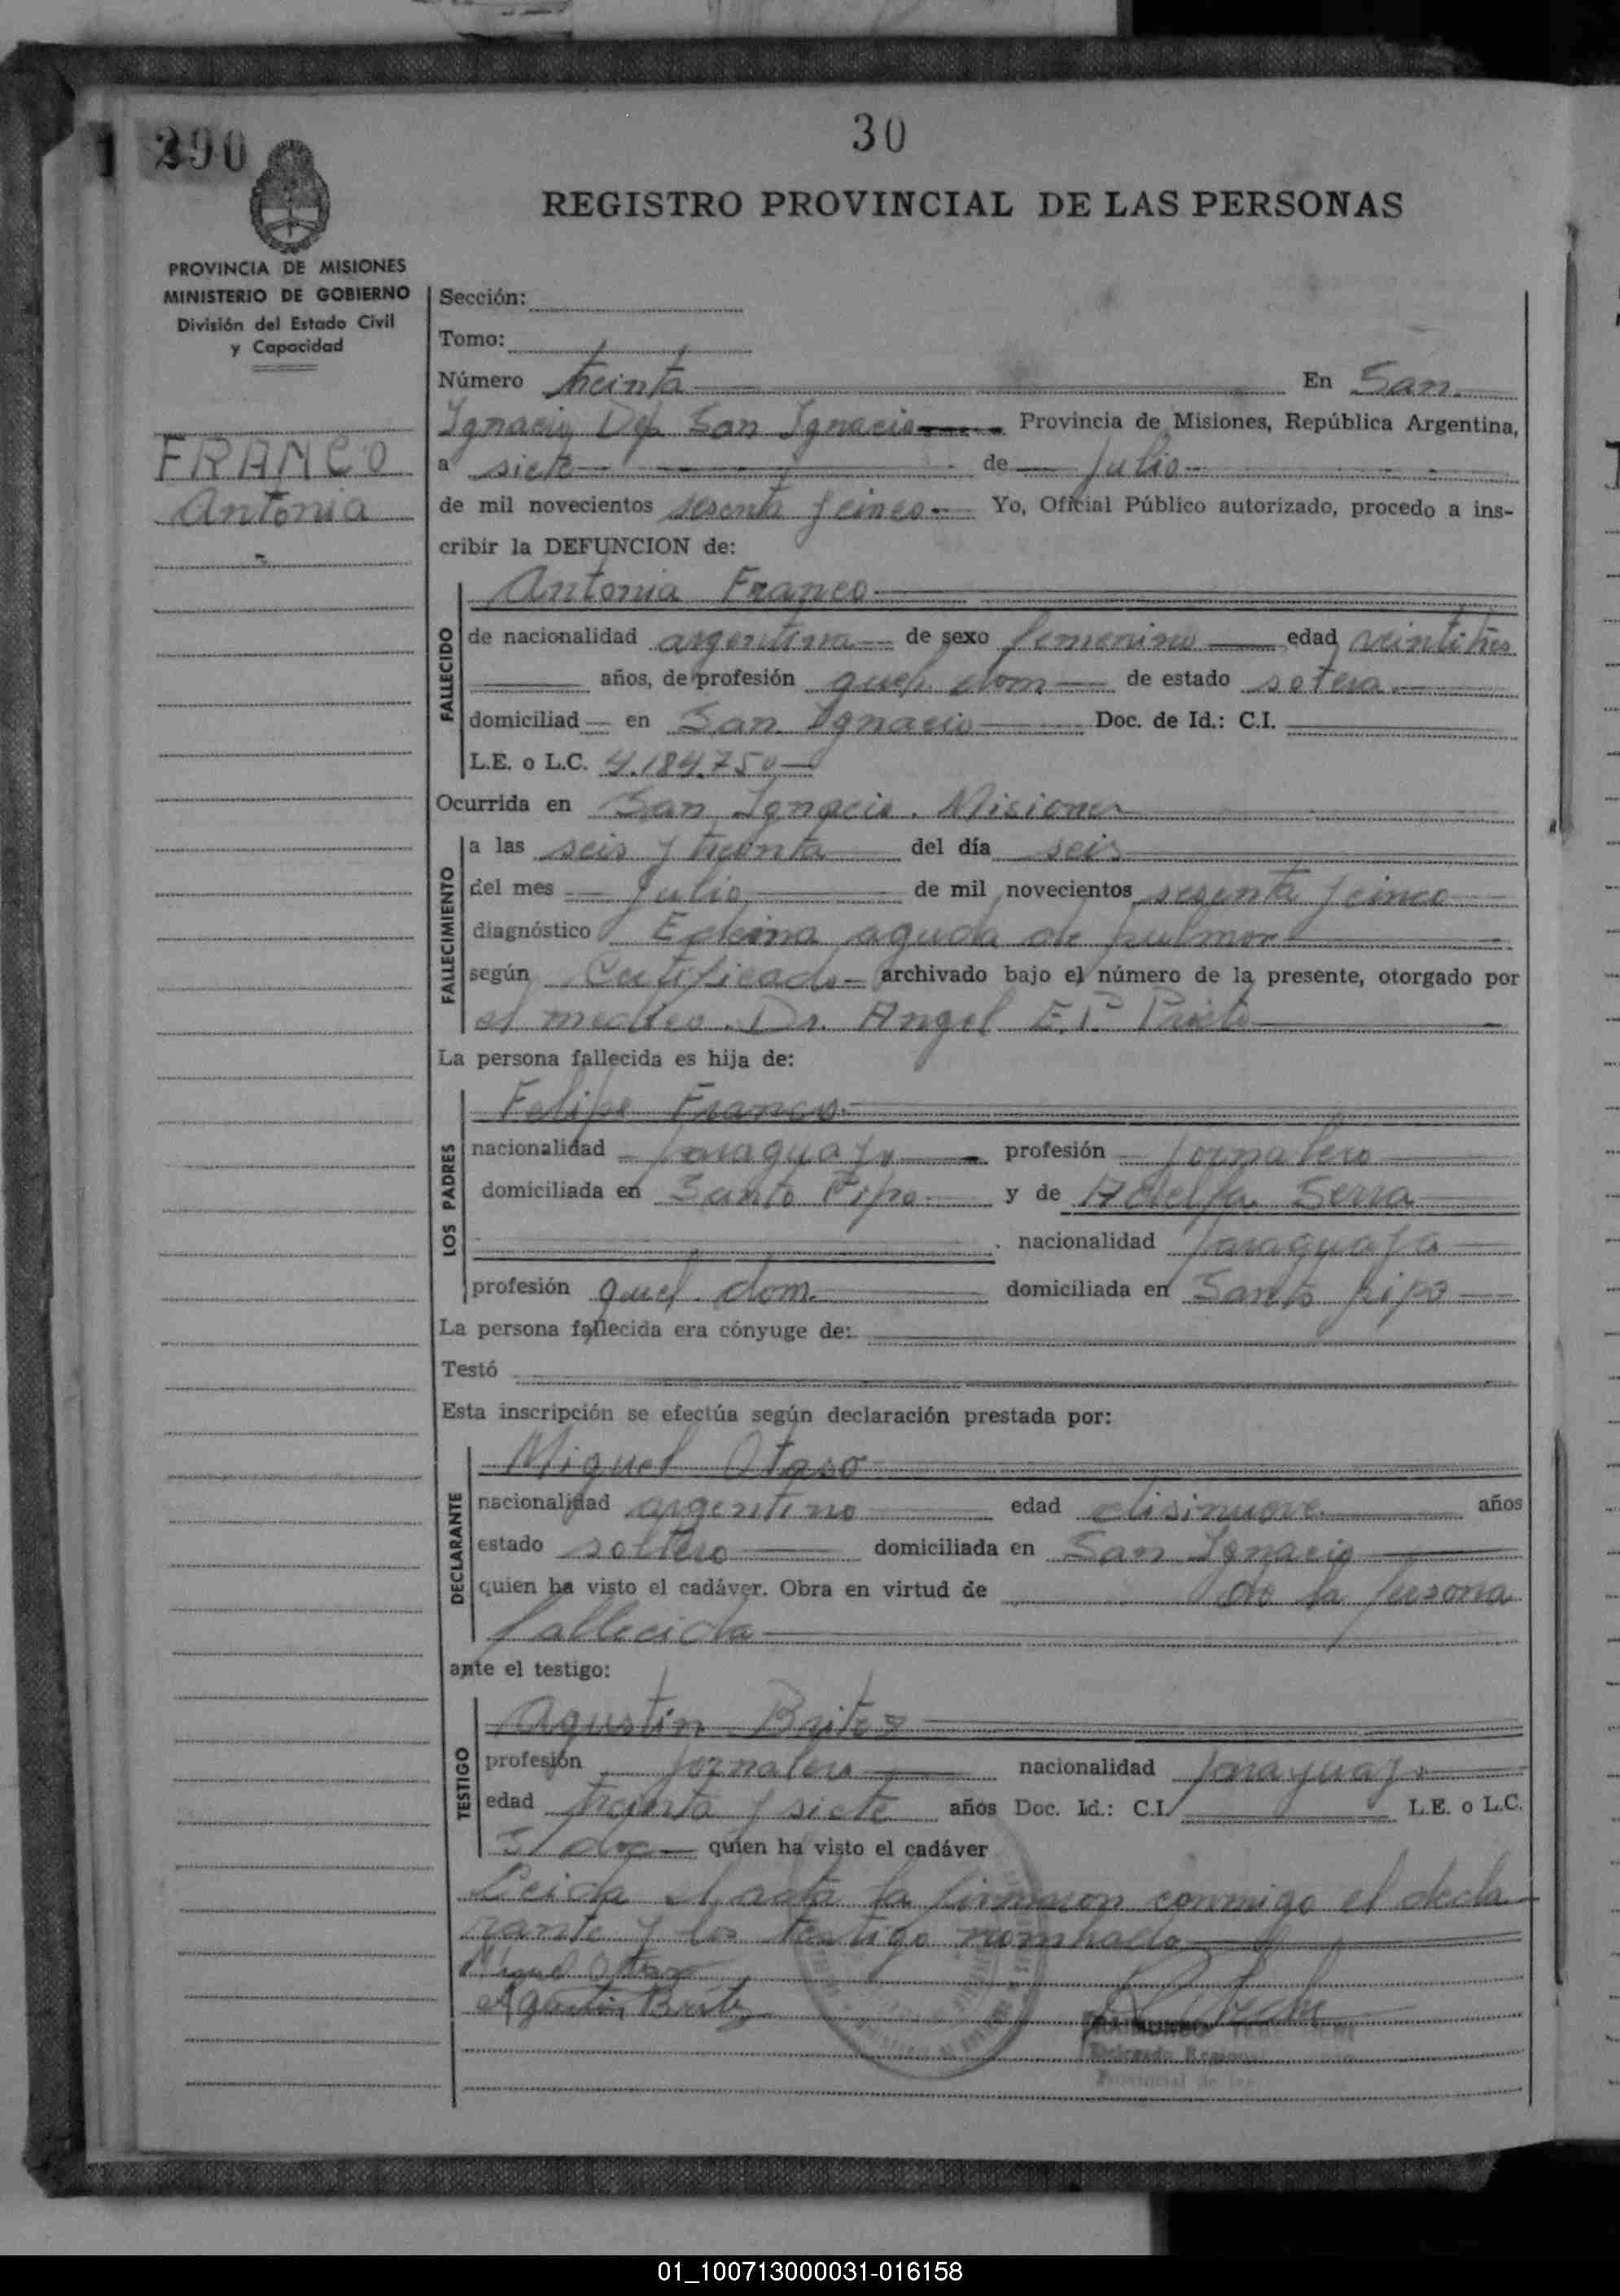 30
290
REGISTRO PROVINCIAL DE LAS PERSONAS
PROVINCIA DE MISIONES
MINISTERIO DE GOBIERNO
División del Estado Civil
y Capacidad
FRANCO
Antonia
Sección:
Tomo:
Número treinta En San
Ignacio Dep San Ignacio Provincia de Misiones, República Argentina,
a siete de Julio
de mil novecientos sesenta y cinco Yo, Oficial Público autorizado, procedo a ins-
cribir la DEFUNCION de:
FALLECIDO
Antonia Franco
de nacionalidad argentina de sexo femenino edad veintitres
años, de profesión queh. dom de estado sotera
domiciliad en San Ignacio Doc. de Id.: C.I.
L.E. o L.C. 4.184.750
Ocurrida en San Ignacio. Misiones
FALLECIMIENTO
a las seis y treinta del día seis
del mes Julio de mil novecientos sesenta y cinco
diagnóstico aguda de pulmon
según Certificado archivado bajo el número de la presente, otorgado por
el medico. Dr. Angel E.P.
La persona fallecida es hija de:
LOS PADRES
Felipe Franco
nacionalidad Paraguayo profesión Jornalero
domiciliada en Santo Pipo y de Adelfa Serra
nacionalidad Paraguaya
profesión queh. dom. domiciliada en Santo pipo
La persona fallecida era cónyuge de:
Testó
Esta inscripción se efectúa según declaración prestada por:
DECLARANTE
Miguel Otaso
nacionalidad argentino edad disinueve años
estado soltero domiciliada en San Ignacio
quien ha visto el cadáver. Obra en virtud de de la persona
fallecida
ante el testigo:
TESTIGO
Agustin Britez
profesión Jornalero nacionalidad Paraguayo
edad treinta y siete años Doc. Id.: C.I. L.E. o L.C.
S/ doc quien ha visto el cadáver
Leida el acta la firmaron conmigo el decla
rante y los testigo nombrado
Miguel Otaso
Agustin Britez
RAIMUNDO
Delegado Regional
Provincial de las
01_100713000031-016158